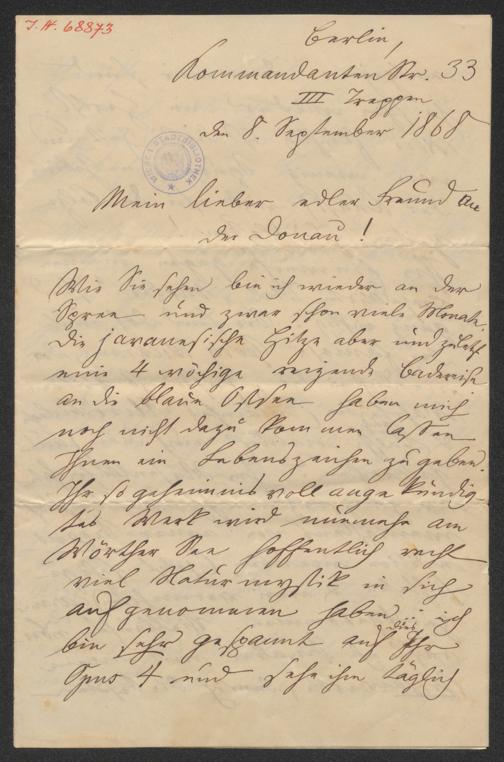 J. N. 68873
Berlin,
Kommandanten Str. 33
III Treppen
den 8. September 1868
WIENER STADTBIBLIOTHEK
Mein lieber edler Freund an
der Donau!
Wie Sie sehen bin ich wieder an der
Spree und zwar schon viele Monate.
Die javanesische Hitze aber und zuletzt
eine 4 wöchige reizende Badereise
an die blaue Ostsee haben mich
noch nicht dazu kommen lassen
Ihnen ein Lebenszeichen zu geben.
Ihr so geheimnisvoll angekündig-
tes Werk wird nunmehr am
Wörther See hoffentlich recht
viel Naturmystik in sich
aufgenommen haben; ich
bin sehr gespannt auf dies Ihr
Opus 4 und sehe ihm täglich